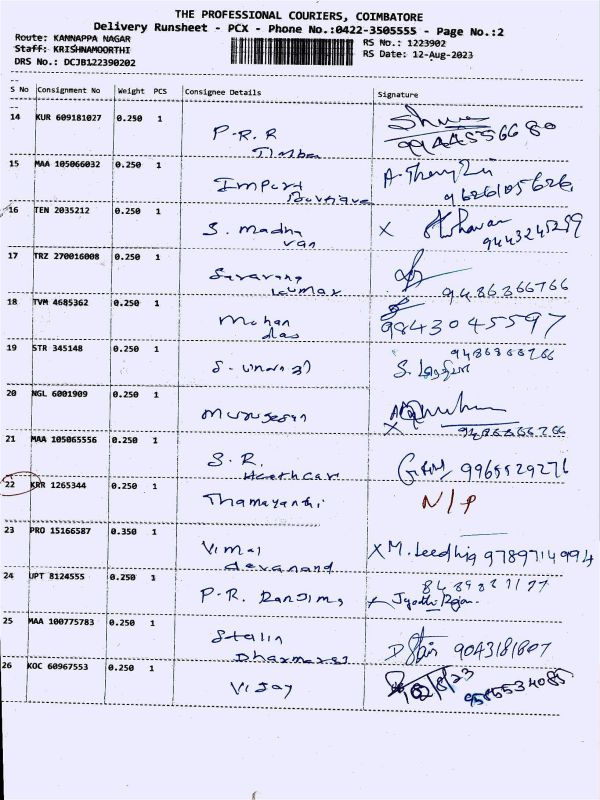 THE PROFESSIONAL COURIERS, COIMBATORE
Delivery Runsheet - PCX - Phone No.:0422-3505555 - Page No.:2
Route: KANNAPPA NAGAR
RS No.: 1223902
Staff: KRISHNAMOORTHI
RS Date: 12-Aug-2023
DRS No.: DCJB122390202
S No Consignment No Weight PCS Consignee Details Signature
14 KUR 609181027 0.250 1
P.R.R
Timber
9944556680
15 MAA 105066032 0.250 1
Import
Boutique
9626105626
16 TEN 2035212 0.250 1
S. madha
van
X
9443245299
17 TRZ 270016008 0.250 1
Saravana
kumar
9486366766
18 TVM 4685362 0.250 1
Mohan
das
9843045597
19 STR 345148 0.250 1
20 NGL 6001909 0.250 1
murugesan
X
21 MAA 105065556 0.250 1
S. R.
Healthcar
9965529276
22 KRR 1265344 0.250 1
Thamayanthi
N/P
23 PRO 15166587 0.350 1
Vimal
devanand
X M. 9789714994
24 UPT 8124555 0.250 1
P.R.
Jyothi Rajan.
25 MAA 100775783 0.250 1
Stalin
Dharmaraj
9043181807
26 KOC 60967553 0.250 1
Vijay
12/8/23